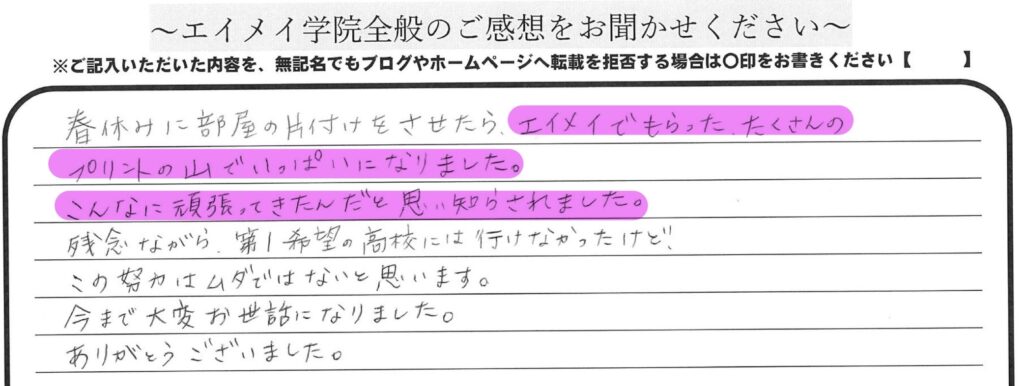 ～エイメイ学院全般のご感想をお聞かせください～
※ご記入いただいた内容を、無記名でもブログやホームページへ転載を拒否する場合は〇印をお書きください【　　】
春休みに部屋の片付けをさせたら、エイメイでもらった、たくさんの
プリントの山でいっぱいになりました。
こんなに頑張ってきたんだと思い知らされました。
残念ながら、第1希望の高校には行けなかったけど!
この努力はムダではないと思います。
今まで大変お世話になりました。
ありがとうございました。